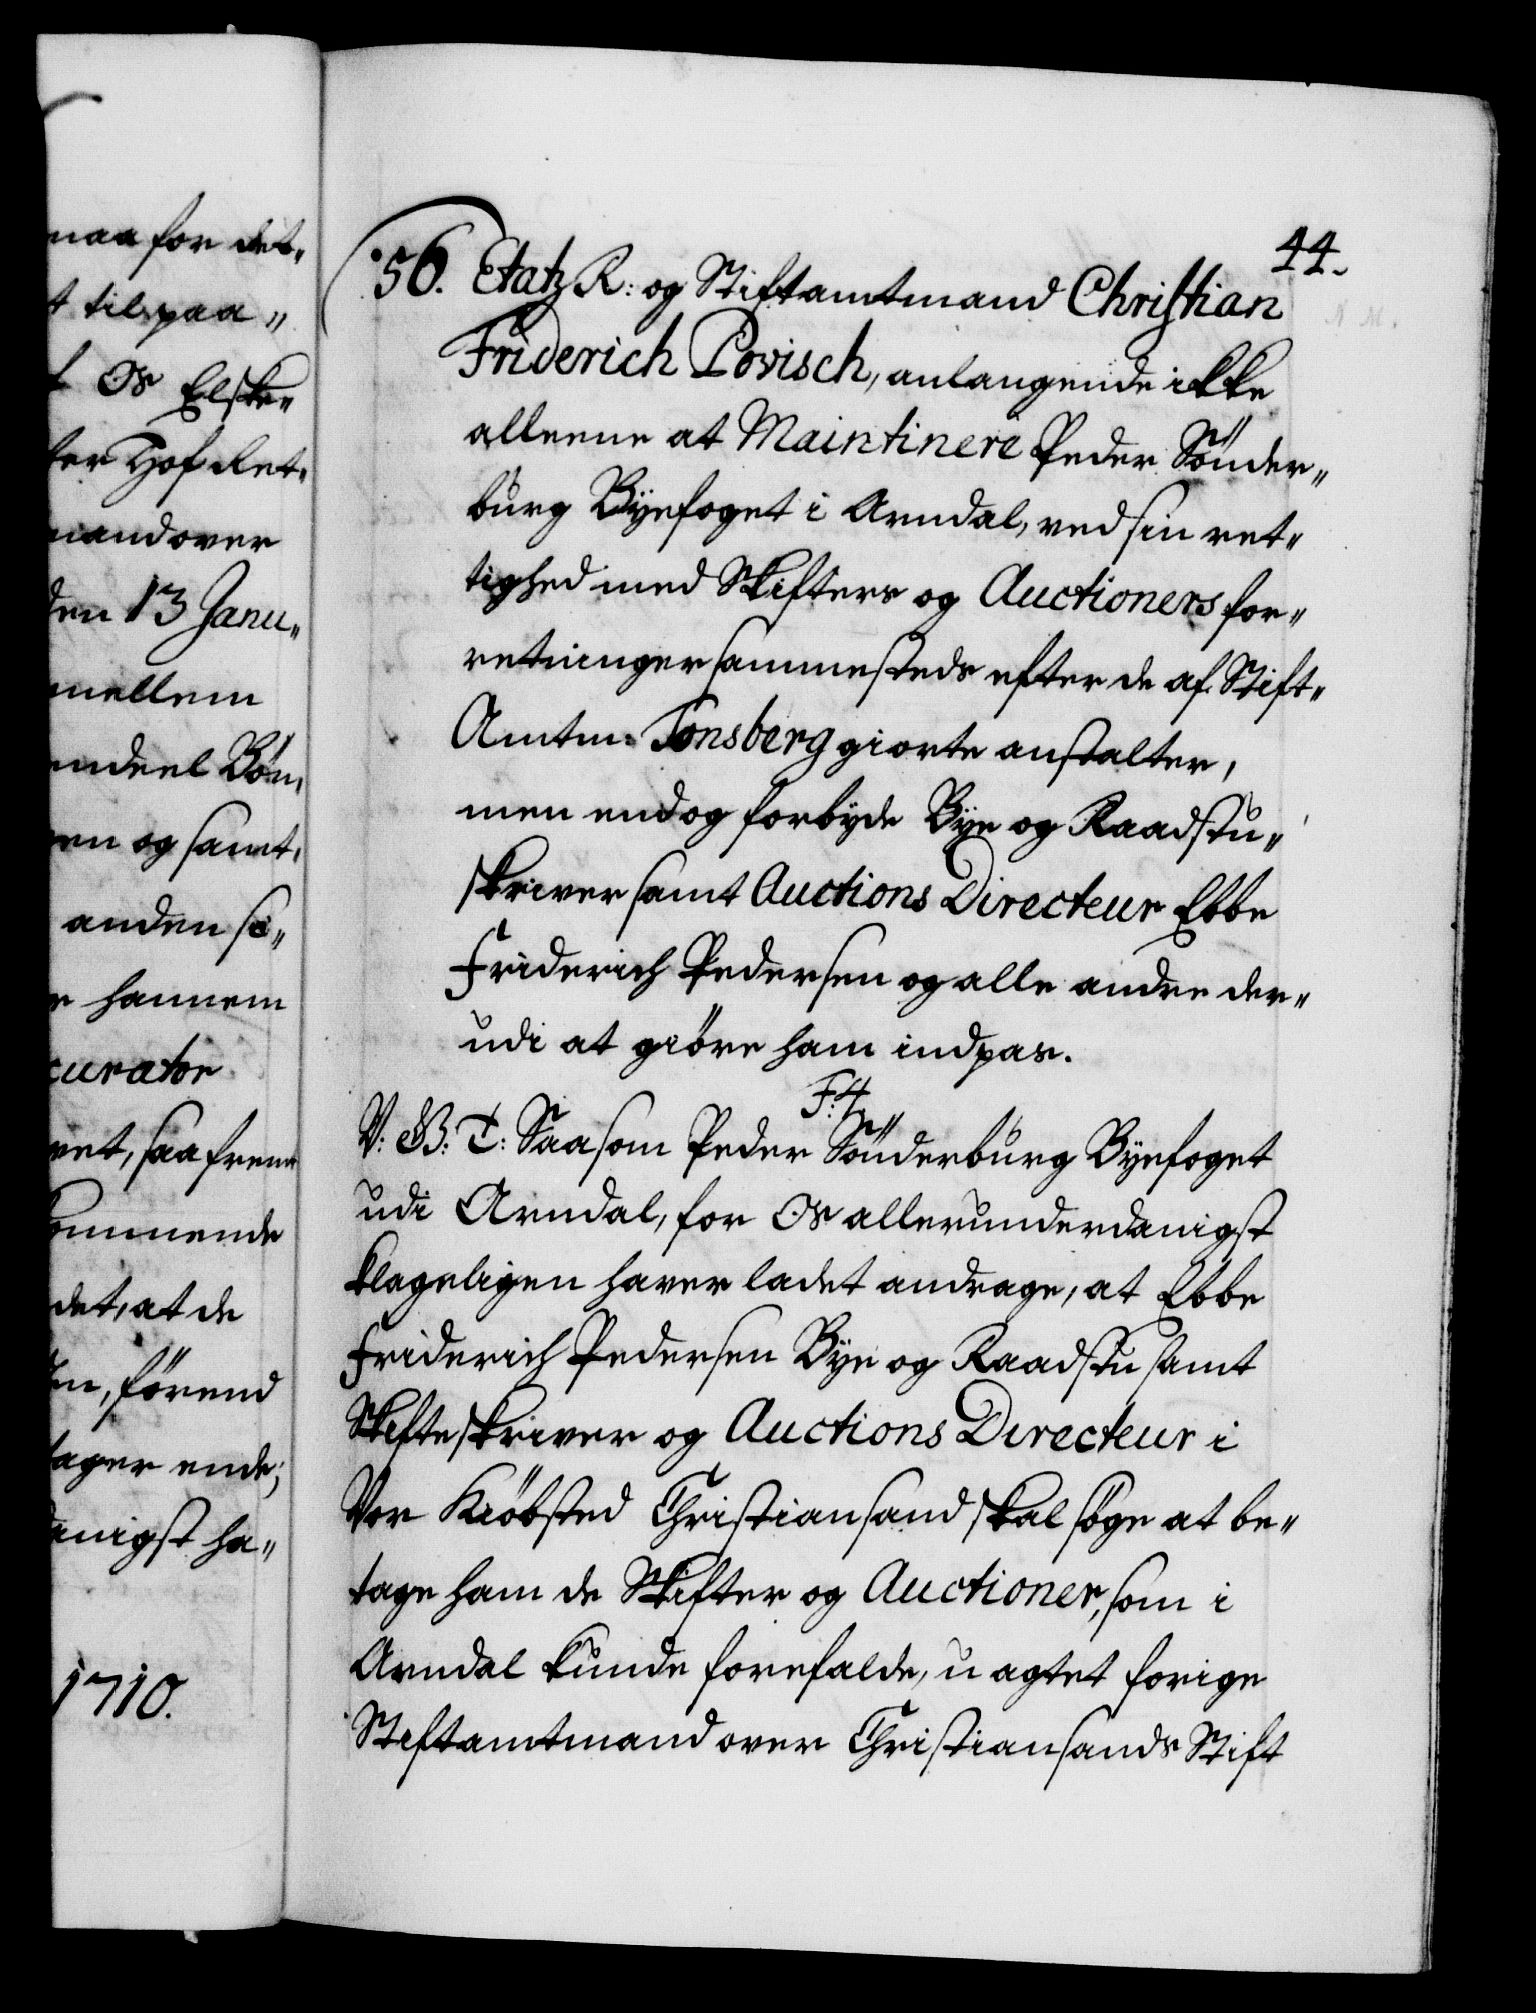 naa for det„
t til paa„
f Os Elske„
ter Hof Ret„
mand over
den 13 Janu„
mellem
endeel Bön„
gen og samt„
anden si„
r hannem
curator
vet, saa frem
kommende
det, at de
en, förend
tager ende;
anigst ha„
1710.
44.
56. EtatzR: og Stiftamtmand Christian
Friderich Povisch, anlangende ikke
alleene at Maintinere Peder Sönder„
burg Byefoget i Arndal, ved sin ret„
tighed med Skifters og Auctioners for„
retninger sammesteds efter de af Stift„
Amtm: Tonsberg giorte anstalter,
men endog forbyde Bye og Raadstu„
skriver samt Auctions Directeur Ebbe
Friderich Pedersen og alle andre der„
udi at giöre ham indpas.
F: 4.
V: G: T: Saasom Peder Sönderburg Byefoget
udi Arndal, for Os allerunderdanigst
klageligen haver ladet andrage, at Ebbe
Friderich Pedersen Bye og Raadstu samt
Skifteskriver og Auctions Directeur i
Vor Kiöbsted Christiansand skal söge at be„
tage ham de Skifter og Auctioner, som i
Arndal kunde forefalde, u agtet forige
Stiftamtmand over Christiansands Stift